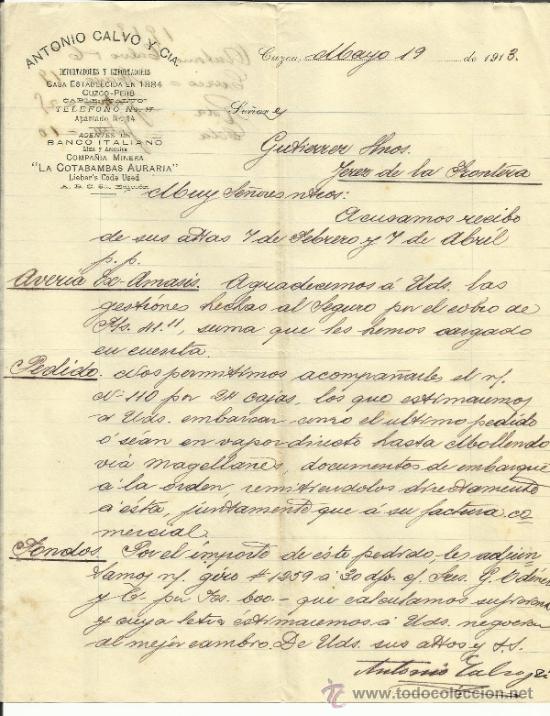 ANTONIO CALVO Y CIA.
IMPORTADORES Y EXPORTADORES
CASA ESTABLECIDA EN 1884
CUZCO-PERÚ
CABLE "CALVO"
TELÉFONO No. 17
Apartado No. 14
AGENTES DEL
BANCO ITALIANO
Lima y Arequipa
COMPAÑIA MINERA
"LA COTABAMBAS AURARIA"
Lieber's Code Used
A. B. C. 5a. Edición
Cuzco, Mayo 19 de 1913.
Señores
Gutierrez Hnos.
Jerez de la Frontera
Muy Señores ntros:
Acusamos recibo
de sus attas 7 de Febrero y 7 de Abril
p. p.
Averia Ex-Amasis. Agradecemos á Uds. las
gestiones hechas al Seguro por el cobro de
41.11, suma que les hemos cargado
en cuenta.
Pedido. Nos permitimos acompañarles el n/.
No. 110 por 24 cajas, los que estimaremos
á Uds. embarcar como el ultimo pedido
o séan en vapor directo hasta Mollendo
viá Magellanes, documentos de embarque
á la orden, remitiendolos directamente
a ésta, juntamente que á su factura co-
mercial.
Fondos. Por el importe de éste pedido les adjun-
tamos n/. giro # 1259 á 30 d/v. c/. Sres. P.
y Ca. por 600- que calculamos
y cuya letra estimaremos á Uds. negociar
al mejor cambio. De Uds. sus attos y S.S.
Antonio Calvo y Cia
todocoleccion.net
http://www.todocoleccion.net